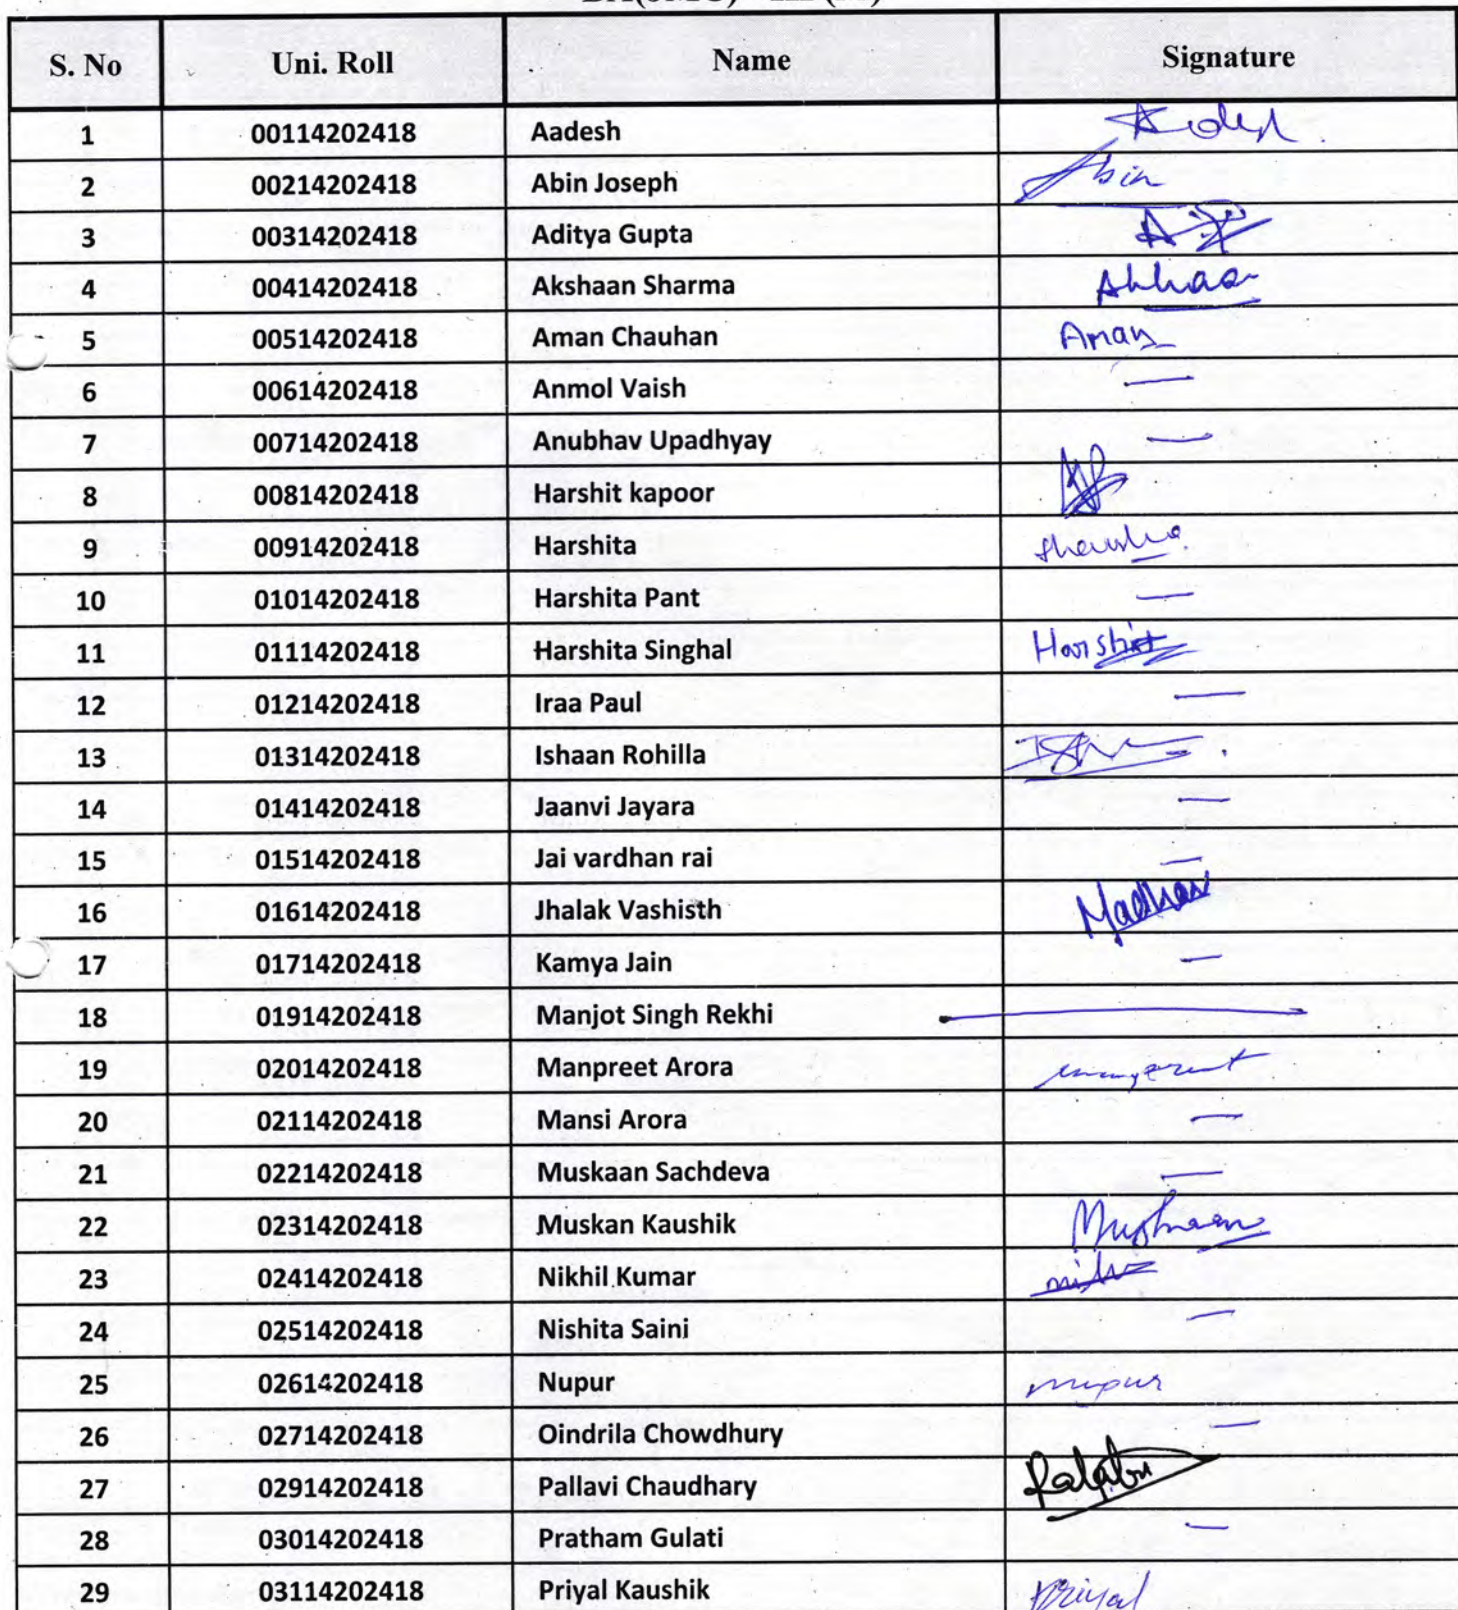 S. No Uni. Roll Name Signature
1 00114202418 Aadesh
2 00214202418 Abin Joseph Abin
3 00314202418 Aditya Gupta
4 00414202418 Akshaan Sharma
5 00514202418 Aman Chauhan Aman
6 00614202418 Anmol Vaish —
7 00714202418 Anubhav Upadhyay —
8 00814202418 Harshit kapoor
9 00914202418 Harshita
10 01014202418 Harshita Pant —
11 01114202418 Harshita Singhal
12 01214202418 Iraa Paul —
13 01314202418 Ishaan Rohilla
14 01414202418 Jaanvi Jayara —
15 01514202418 Jai vardhan rai —
16 01614202418 Jhalak Vashisth Madhav
17 01714202418 Kamya Jain —
18 01914202418 Manjot Singh Rekhi —
19 02014202418 Manpreet Arora
20 02114202418 Mansi Arora —
21 02214202418 Muskaan Sachdeva —
22 02314202418 Muskan Kaushik
23 02414202418 Nikhil Kumar
24 02514202418 Nishita Saini —
25 02614202418 Nupur nupur
26 02714202418 Oindrila Chowdhury —
27 02914202418 Pallavi Chaudhary
28 03014202418 Pratham Gulati —
29 03114202418 Priyal Kaushik Priyal